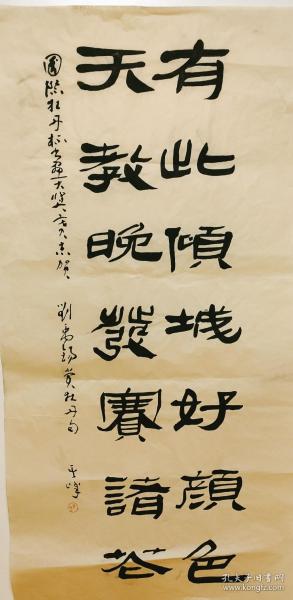 有此傾城好顔色
天教晚發賽諸花
國際牡丹杯書畫大獎賽志賀
劉禹錫賞牡丹句
孔夫子旧书网